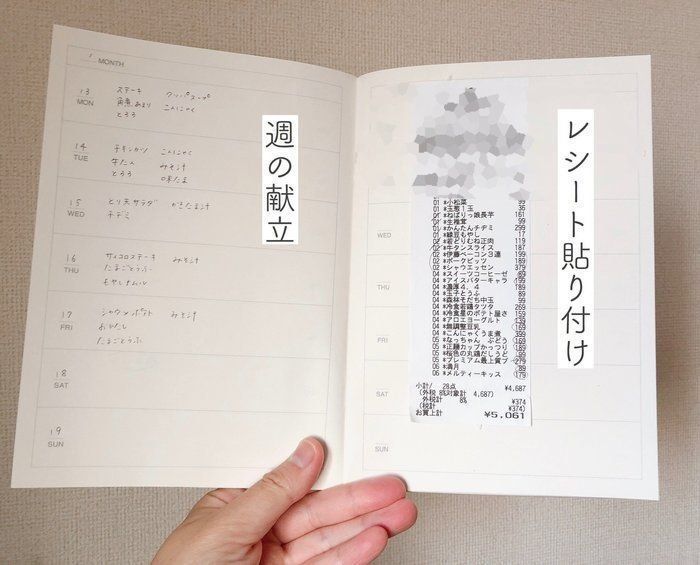 MONTH
13
MON
ステーキ
クッパスープ
角煮あまり
こんにゃく
とろろ
14
TUE
チキンカツ
こんにゃく
牛たん
みそ汁
とろろ
味たま
15
WED
とり天サラダ
かきたま汁
チヂミ
16
THU
サイコロステーキ
みそ汁
たまごとうふ
もやしナムル
17
FRI
シャウ
ポテト
みそ汁
たまごとうふ
18
SAT
19
SUN
週の献立
WED
THU
FRI
SAT
SUN
01 *小松菜 99
01 *玉葱1玉 36
01 *ねばりっ娘長芋 161
01 *生椎茸 99
01 *かんたんチヂミ 299
01 *緑豆もやし 17
02 *若どりむね正肉 119
02 *牛タンスライス 187
02 *伊藤ベーコン3連 199
02 *ポークビッツ 189
02 *シャウエッセン 379
04 *スイーツコーヒーゼ 69
04 *アイスバターキャラ 199
04 *濃厚4.4 189
04 *玉子とうふ 89
04 *森林そだち中玉 99
04 *冷食若鶏タツタ 269
04 *冷食星のポテト屋さ 159
04 *アロエヨーグルト 139
04 *無調整豆乳 169
04 *こんにゃくうま煮 399
05 *なっちゃん ぶどう 169
05 *正麺カップかっつり 189
05 *桜色の丸鶏だしうど 99
05 *プレミアム最上質プ 279
06 *満月 89
06 *メルティーキッス 179
小計/ 28点 ¥4,687
(外税 8%対象計 4,687)
外税計 8% ¥374
(税計 ¥374)
お買上計 ¥5,061
レシート貼り付け